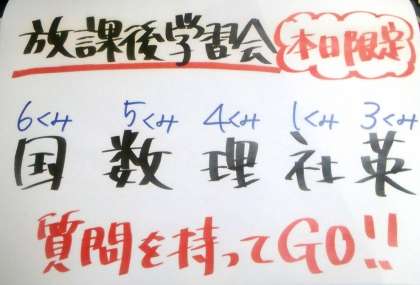 放課後学習会 本日限定
6くみ 5くみ 4くみ 1くみ 3くみ
国 数 理 社 英
質問を持ってGO!!